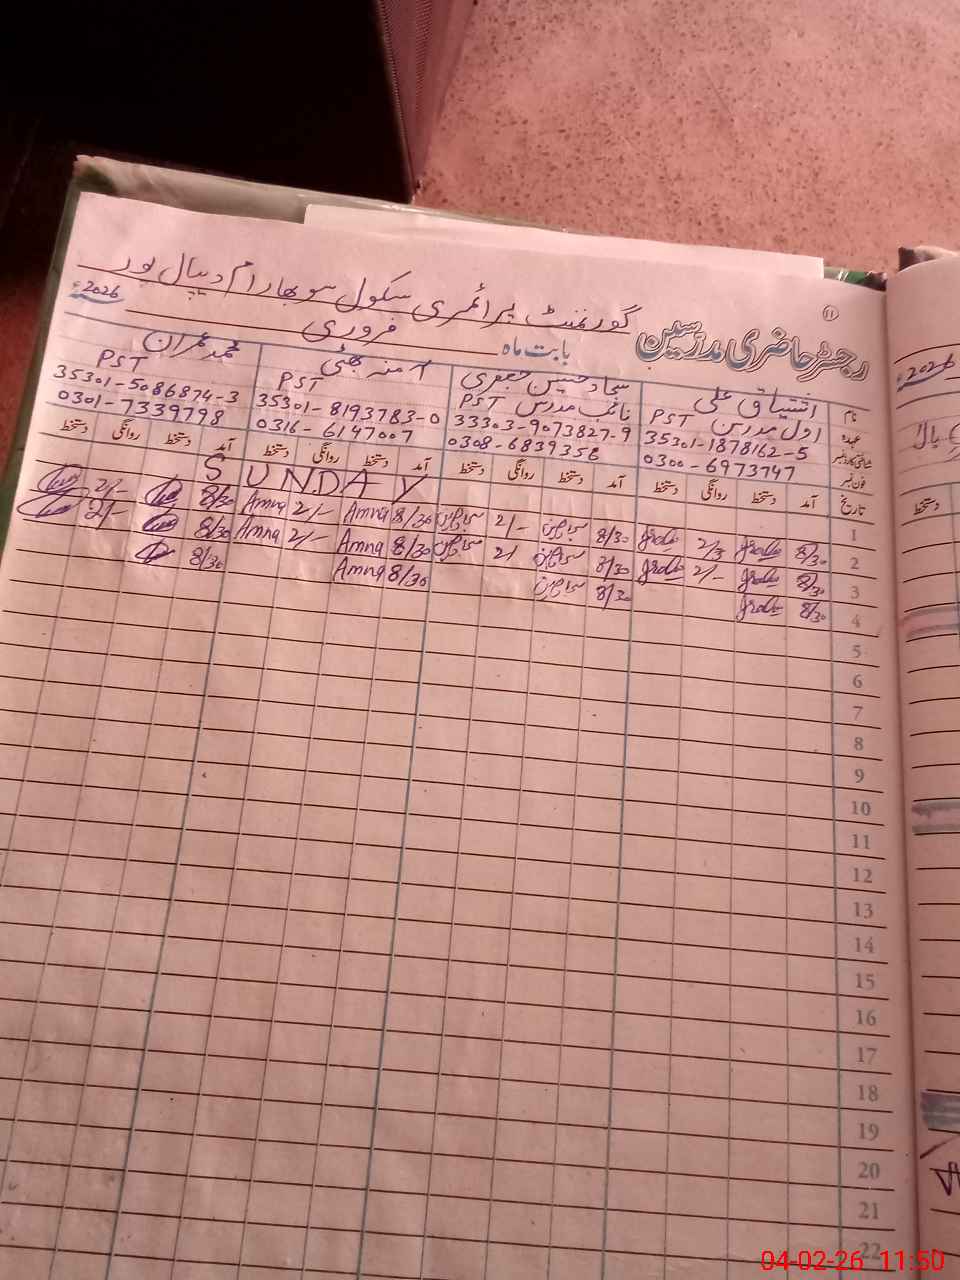 ۱۱
گورنمنٹ پرائمری سکول سوبھارام دیپال پور
رجسٹر حاضری مدرسین بابت ماہ فروری 2026ء
نام اشتیاق علی سجاد حسین جعفری آمنہ بھٹی محمد عمران
عہدہ اول مدرس PST نائب مدرس PST PST PST
شناختی کارڈ نمبر 35301-1878162-5 33303-9073827-9 35301-8193783-0 35301-5086874-3
فون نمبر 0300-6973747 0308-6839358 0316-6147007 0301-7339798
تاریخ آمد دستخط روانگی دستخط آمد دستخط روانگی دستخط آمد دستخط روانگی دستخط آمد دستخط روانگی دستخط
1 SUNDAY
2 8/30 2/3 8/30 2/- 8/30 Amna 2/- Amna 8/30 2/-
3 8/30 2/- 8/30 2/ 8/30 Amna 2/- Amna 8/30 2/-
4 8/30 8/30 8/30 Amna 8/30
5
6
7
8
9
10
11
12
13
14
15
16
17
18
19
20
21
22
2026ء
دستخط
04-02-26 11:50